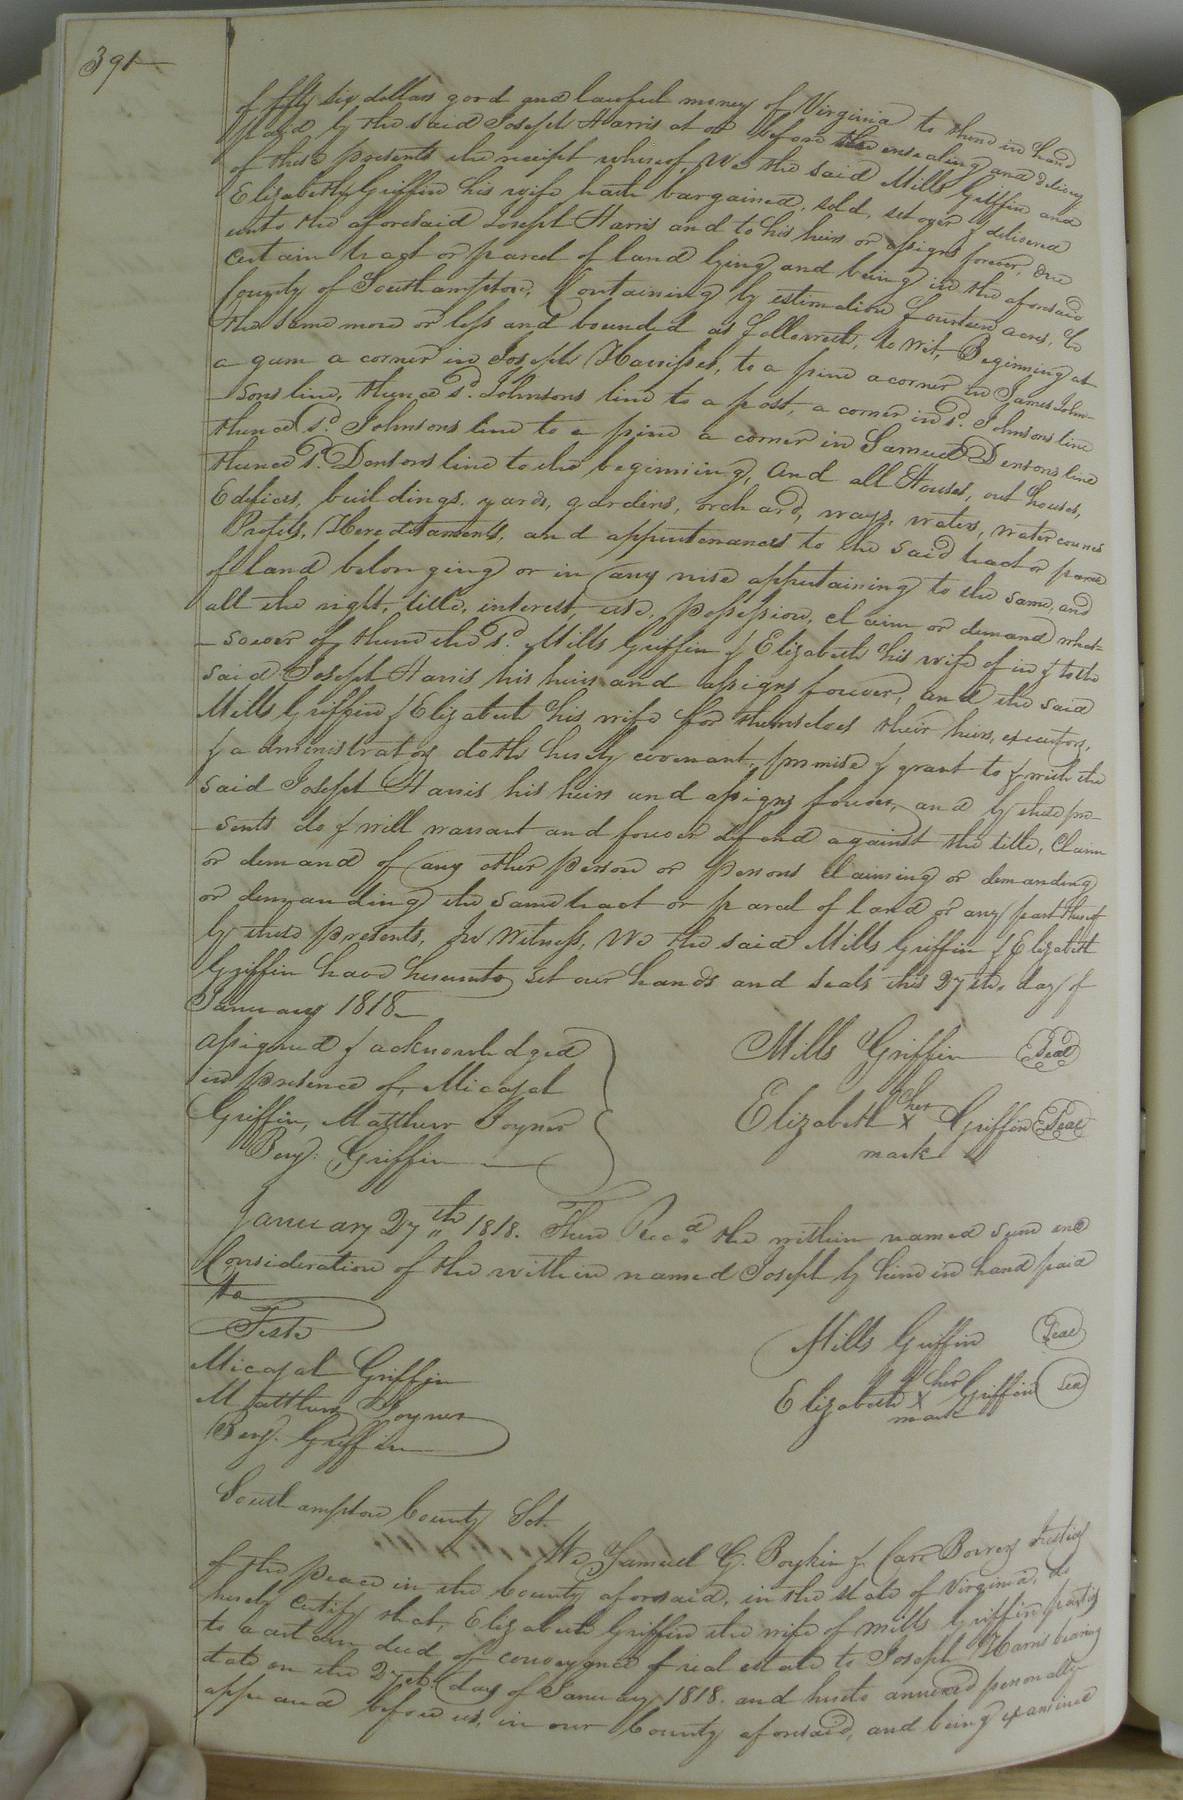 391
of fifty six dollars good and lawful money of Virginia to them in hand
paid by the said Joseph Harris at or before the ensealing and delivery
of these presents the receipt whereof, We the said Mills Griffin and
Elizabeth Griffin his wife hath bargained, sold, set over & delivered
unto the aforesaid Joseph Harris and to his heirs or assigns forever, one
certain tract or parcel of land lying and being in the aforesaid
County of Southampton, Containing by estimation fourteen acres, be
the same more or less and bounded as followeth, to wit, Beginning at
a gum a corner in Joseph Harrisses, to a pine a corner in James John-
sons line, thence sd. Johnsons line to a post, a corner in sd. Johnsons line
thence sd. Johnsons line to a pine a corner in Samuel Densons line
thence sd. Densons line to the beginning, and all Houses, out houses,
Edifices, buildings, yards, gardens, orchard, ways, waters, water courses
Profits, Hereditaments, and appurtenances to the said tract or parcel
of land belonging or in any wise appertaining to the same, and
all the right, title, interest, use, possession, claim or demand what-
-soever of them the sd. Mills Griffin & Elizabeth his wife of in & to the
said Joseph Harris his heirs and assigns forever, and the said
Mills Griffin & Elizabeth his wife for themselves their heirs, executors,
& administrators doth hereby covenant, promise & grant to & with the
said Joseph Harris his heirs and assigns forever, and by these pre-
-sents do & will warrant and forever defend against the title, Claim
or demand of any other person or persons claiming or demanding
or demanding the same tract or parcel of land or any part thereof
by these presents, In Witness, We the said Mills Griffin & Elizabeth
Griffin have hereunto set our hands and seals this 27th. day of
January 1818.
assigned & acknowledged
in presence of, Micajah
Griffin, Matthew Joyner
Benj: Griffin
Mills Griffin Seal
Elizabeth her X mark Griffin Seal
January 27th 1818. Then Recd. the within named sum and
Consideration of the within named Joseph by him in hand paid
to
Teste
Micajah Griffin
Matthew Joyner
Benj. Griffin
Mills Griffin Seal
Elizabeth her X mark Griffin Seal
Southampton County Sct.
We Samuel G. Boykin & Carr Bowers Justices
of the peace in the County aforesaid, in the state of Virginia, do
hereby certify that, Elizabeth Griffin the wife of Mills Griffin parties
to a certain deed of conveyance of real estate to Joseph Harris bearing
date on the 27th. day of January 1818. and hereto annexed personally
appeared before us, in our County aforesaid, and being examined